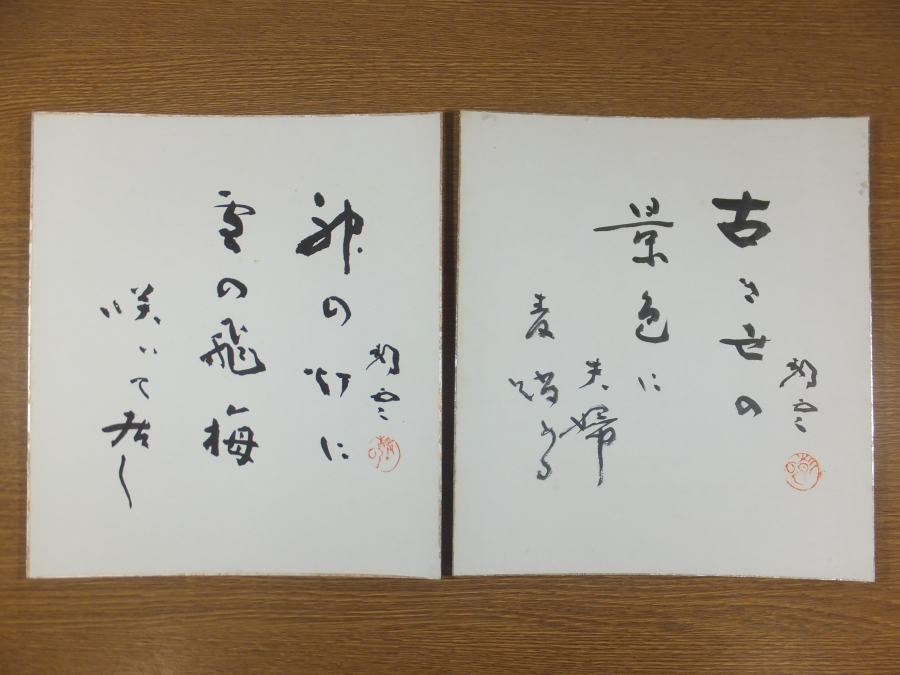 古き世の
景色に
夫婦
麦踏める
神の灯に
雪の飛梅
咲いて居し